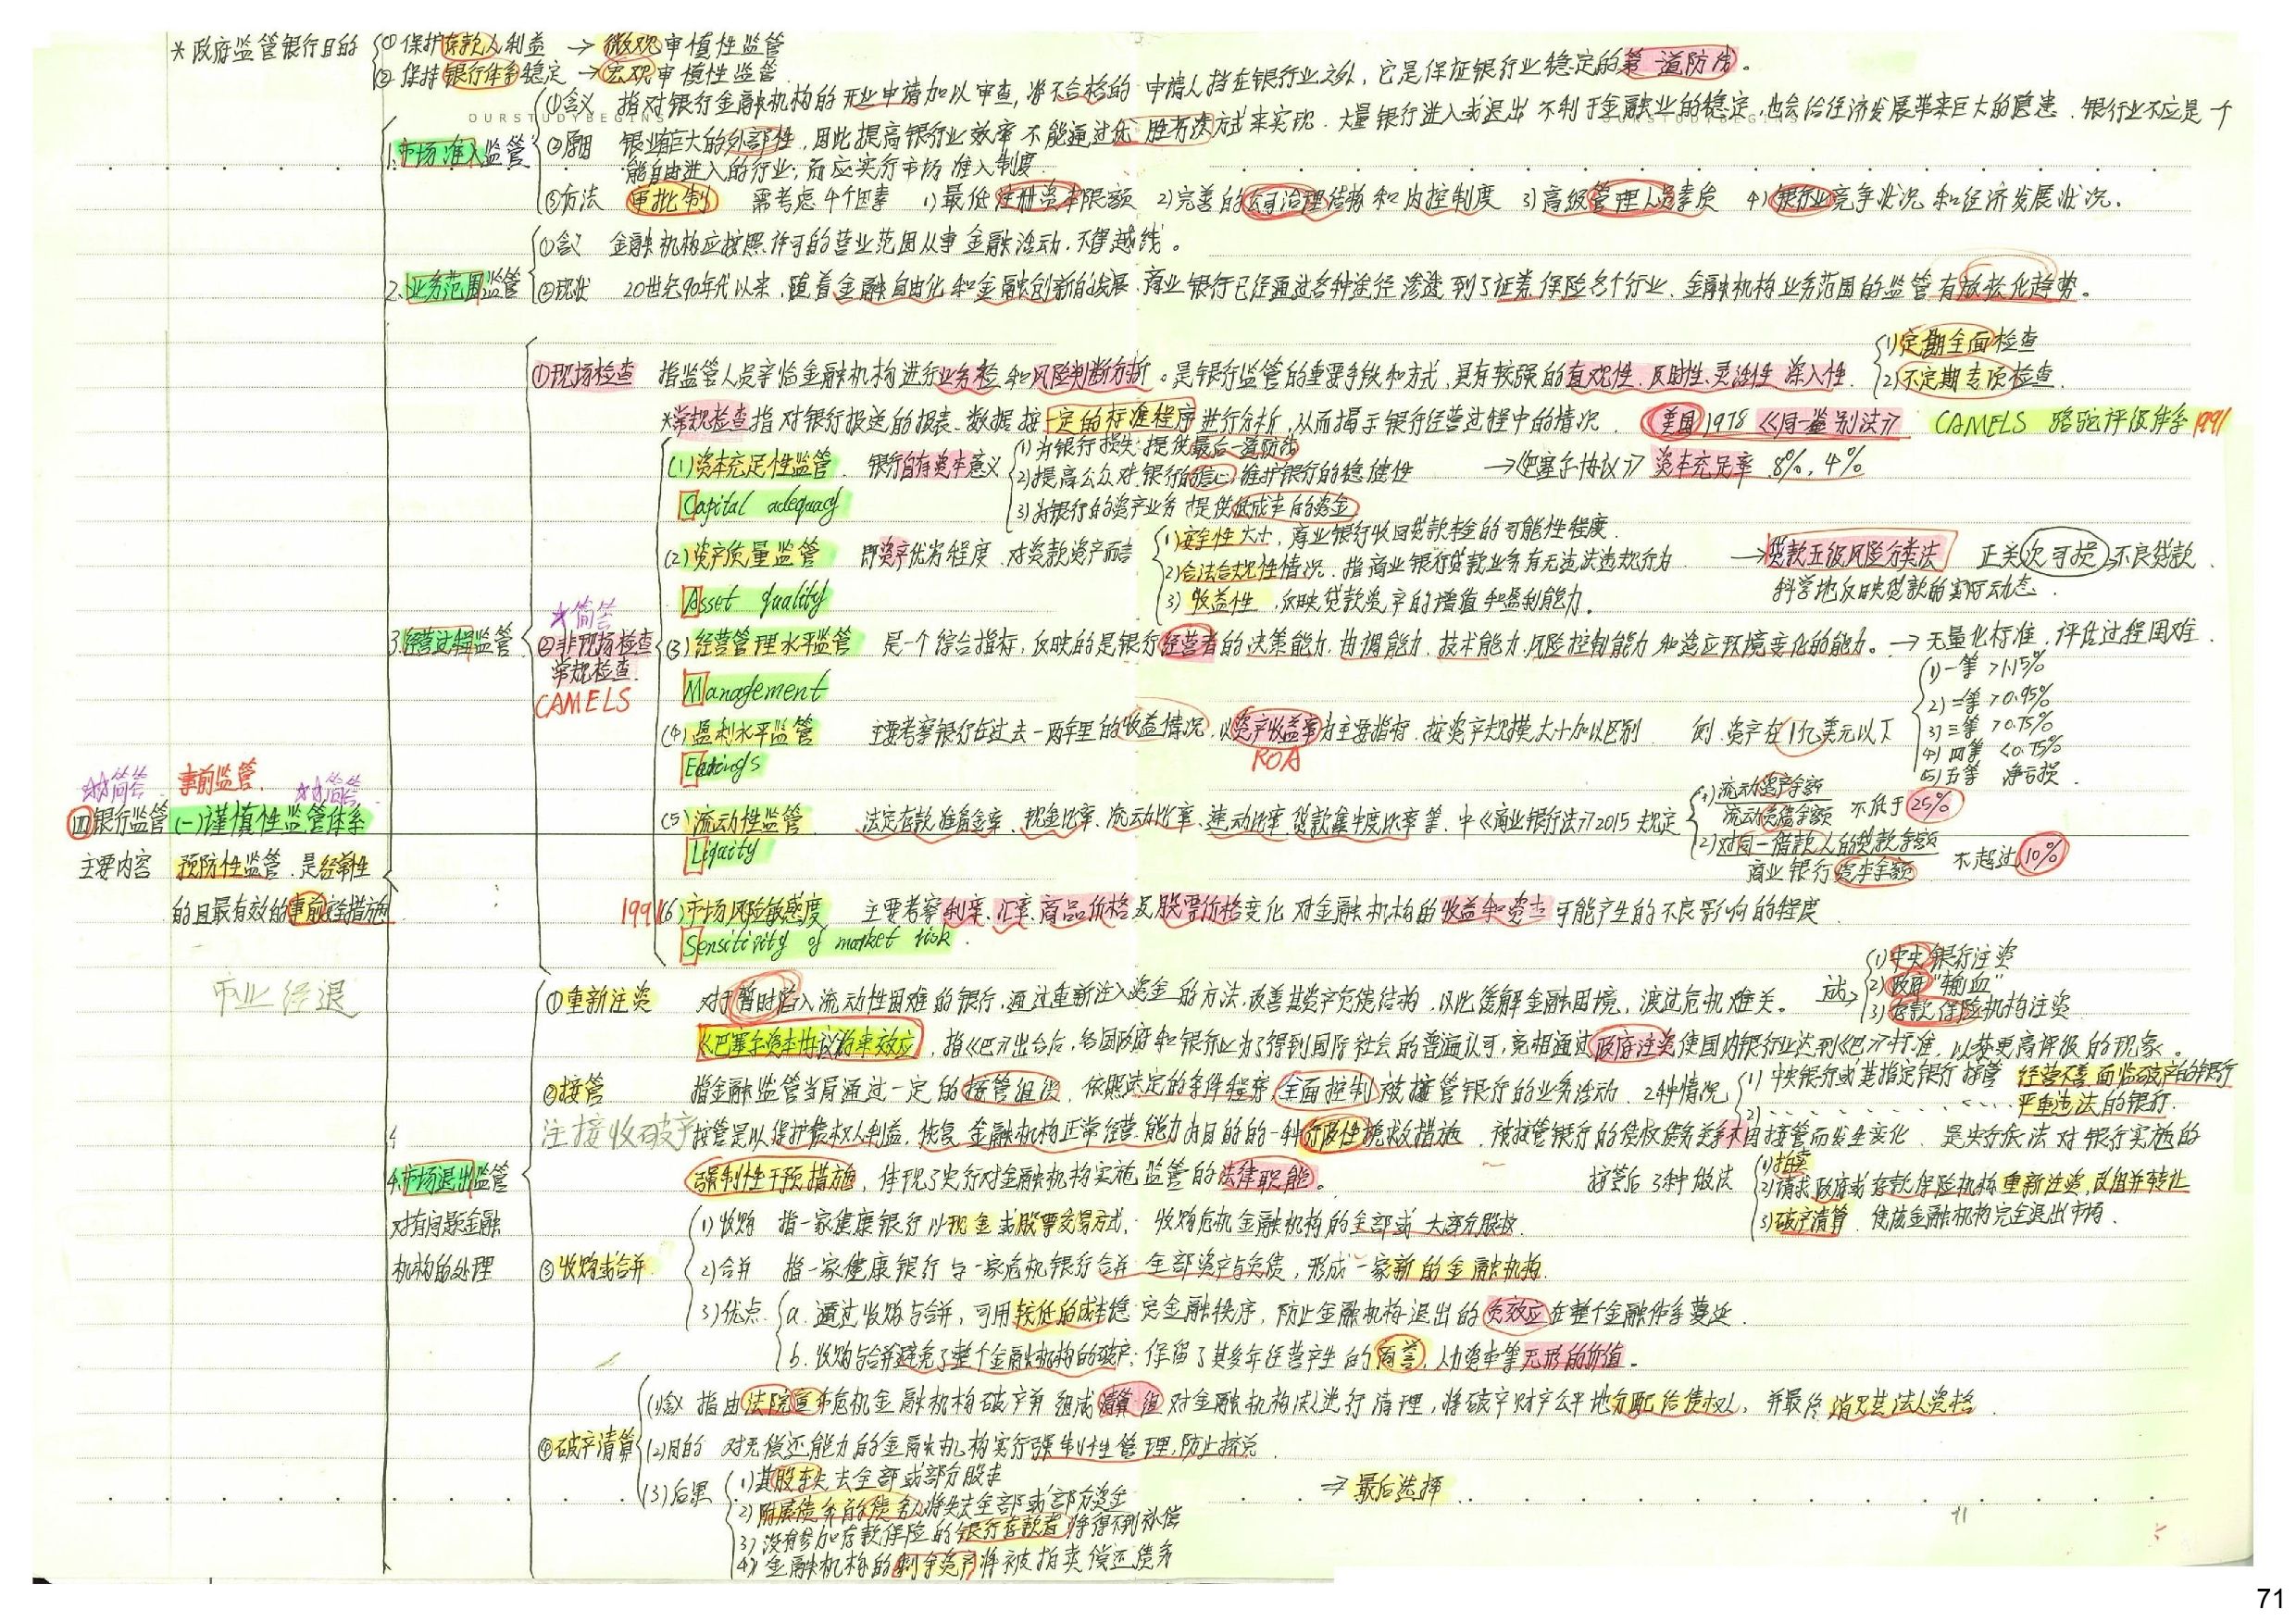 *政府监管银行目的 ①保护存款人利益 → 微观审慎性监管
②保持银行体系稳定 → 宏观审慎性监管
OURSTUDYBEGINS
1.市场准入监管
①含义 指对银行金融机构的开业申请加以审查，将不合格的申请人挡在银行业之外，它是保证银行业稳定的第一道防线。
②原因 银业有巨大的外部性，因此提高银行业效率不能通过优胜劣汰方式来实现．大量银行进入或退出不利于金融业的稳定，也会给经济发展带来巨大的隐患．银行业不应是一个
能自由进入的行业；而应实行市场准入制度．
③方法 审批制 需考虑4个因素 1)最低注册资本限额 2)完善的公司治理结构和内控制度 3)高级管理人员素质 4)银行业竞争状况和经济发展状况．
2.业务范围监管
①含义 金融机构应按照许可的营业范围从事金融活动．不得越线。
②现状 20世纪90年代以来，随着金融自由化和金融创新的发展，商业银行已经通过各种途径渗透到了证券保险各个行业．金融机构业务范围的监管有放松化趋势。
3.经营过程监管
①现场检查 指监管人员亲临金融机构进行业务检和风险判断分析。是银行监管的重要手段和方式，具有较强的直观性、及时性、灵活性 深入性．
1)定期全面检查
2)不定期专项检查．
*常规检查指对银行报送的报表、数据按一定的标准程序进行分析，从而揭示银行经营过程中的情况．美国1978《同一鉴别法》 CAMELS 骆驼评级体系 1991
☆简答
②非现场检查
常规检查．
CAMELS
(1)资本充足性监管．银行自有资本意义
Capital adequacy
1)为银行损失提供最后一道防线
2)提高公众对银行的信心，维护银行的稳健性
3)为银行的资产业务提供低成本的资金
→《巴塞尔协议》资本充足率 8%、4%
(2)资产质量监管 即资产优劣程度．对贷款资产而言
Asset quality
1)安全性大小，商业银行收回贷款本金的可能性程度．
2)合法合规性情况．指商业银行贷款业务有无违法违规行为
3)收益性．反映贷款资产的增值和盈利能力。
→贷款五级风险分类法 正关次可损→不良贷款．
科学地反映贷款的实际动态．
(3)经营管理水平监管 是一个综合指标，反映的是银行经营者的决策能力、协调能力、技术能力、风险控制能力和适应环境变化的能力。→无量化标准，评估过程困难．
Management
(4)盈利水平监管 主要考察银行在过去一两年里的收益情况，以资产收益率为主要指标．按资产规模大小加以区别 例．资产在1亿美元以下
ROA
1)一等 >1.15%
2)二等 >0.95%
3)三等 >0.75%
4)四等 <0.75%
5)五等 净亏损．
☆☆简答 事前监管． ☆☆简答
四银行监管 (一)谨慎性监管体系
主要内容 预防性监管．是经常性
的且最有效的事前安全措施
(5)流动性监管 法定存款准备金率、现金比率、流动比率、速动比率、贷款集中度比率等．中《商业银行法》2015规定
1)流动资产余额
流动负债余额 不低于25%
2)对同一借款人的贷款余额
商业银行资本余额 不超过10%
1991 (6)市场风险敏感度 主要考察利率、汇率、商品价格及股票价格变化对金融机构的收益和资本可能产生的不良影响的程度．
Sensitivity of market risk．
市业经退
4
4.市场退出监管
对有问题金融
机构的处理
①重新注资 对于暂时陷入流动性困难的银行，通过重新注入资金的方法，改善其资产负债结构，以此缓解金融困境，渡过危机难关。
1)中央银行注资
2)政府“输血”
3)存款保险机构注资
《巴塞尔资本协议》约束效应，指《巴》出台后，各国政府和银行业为了得到国际社会的普遍认可，竞相通过政府注资使国内银行业达到《巴》标准，以获更高评级的现象。
②接管 指金融监管当局通过一定的接管组织，依照法定的条件程序，全面控制被接管银行的业务活动．2种情况
1)中央银行或其指定银行接管 经营不善面临破产的银行
2)．．．．．．严重违法的银行．
注接收破产
接管是以保护债权人利益，恢复金融机构正常经营能力为目的的一种行政性挽救措施．被接管银行的债权债务关系不因接管而发生变化．是央行依法对银行实施的
强制性干预措施，体现了央行对金融机构实施监管的法律职能。
接管后3种做法
1)拍卖
2)请求政府或存款保险机构重新注资，改组并转让
3)破产清算．使该金融机构完全退出市场．
③收购或合并
1)收购 指一家健康银行以现金或股票交易方式，收购危机金融机构的全部或大部分股权．
2)合并 指一家健康银行与一家危机银行合并全部资产与负债，形成一家新的金融机构．
3)优点 a. 通过收购与合并，可用较低的成本稳定金融秩序，防止金融机构退出的负效应在整个金融体系蔓延．
b. 收购与合并避免了整个金融机构的破产；保留了其多年经营产生的商誉，人力资本等无形的价值。
④破产清算
(1)含义 指由法院宣布危机金融机构破产并组成清算组对金融机构进行清理，将破产财产公平地分配给债权人，并最终消灭其法人资格．
(2)目的 对无偿还能力的金融机构实行强制性管理，防止挤兑．
(3)后果
1)其股东失去全部或部分股本
2)附属债务的债务人将失去全部或部分资金
3)没有参加存款保险的银行存款者将得不到补偿
4)金融机构的剩余资产将被拍卖偿还债务
⇒最后选择
71